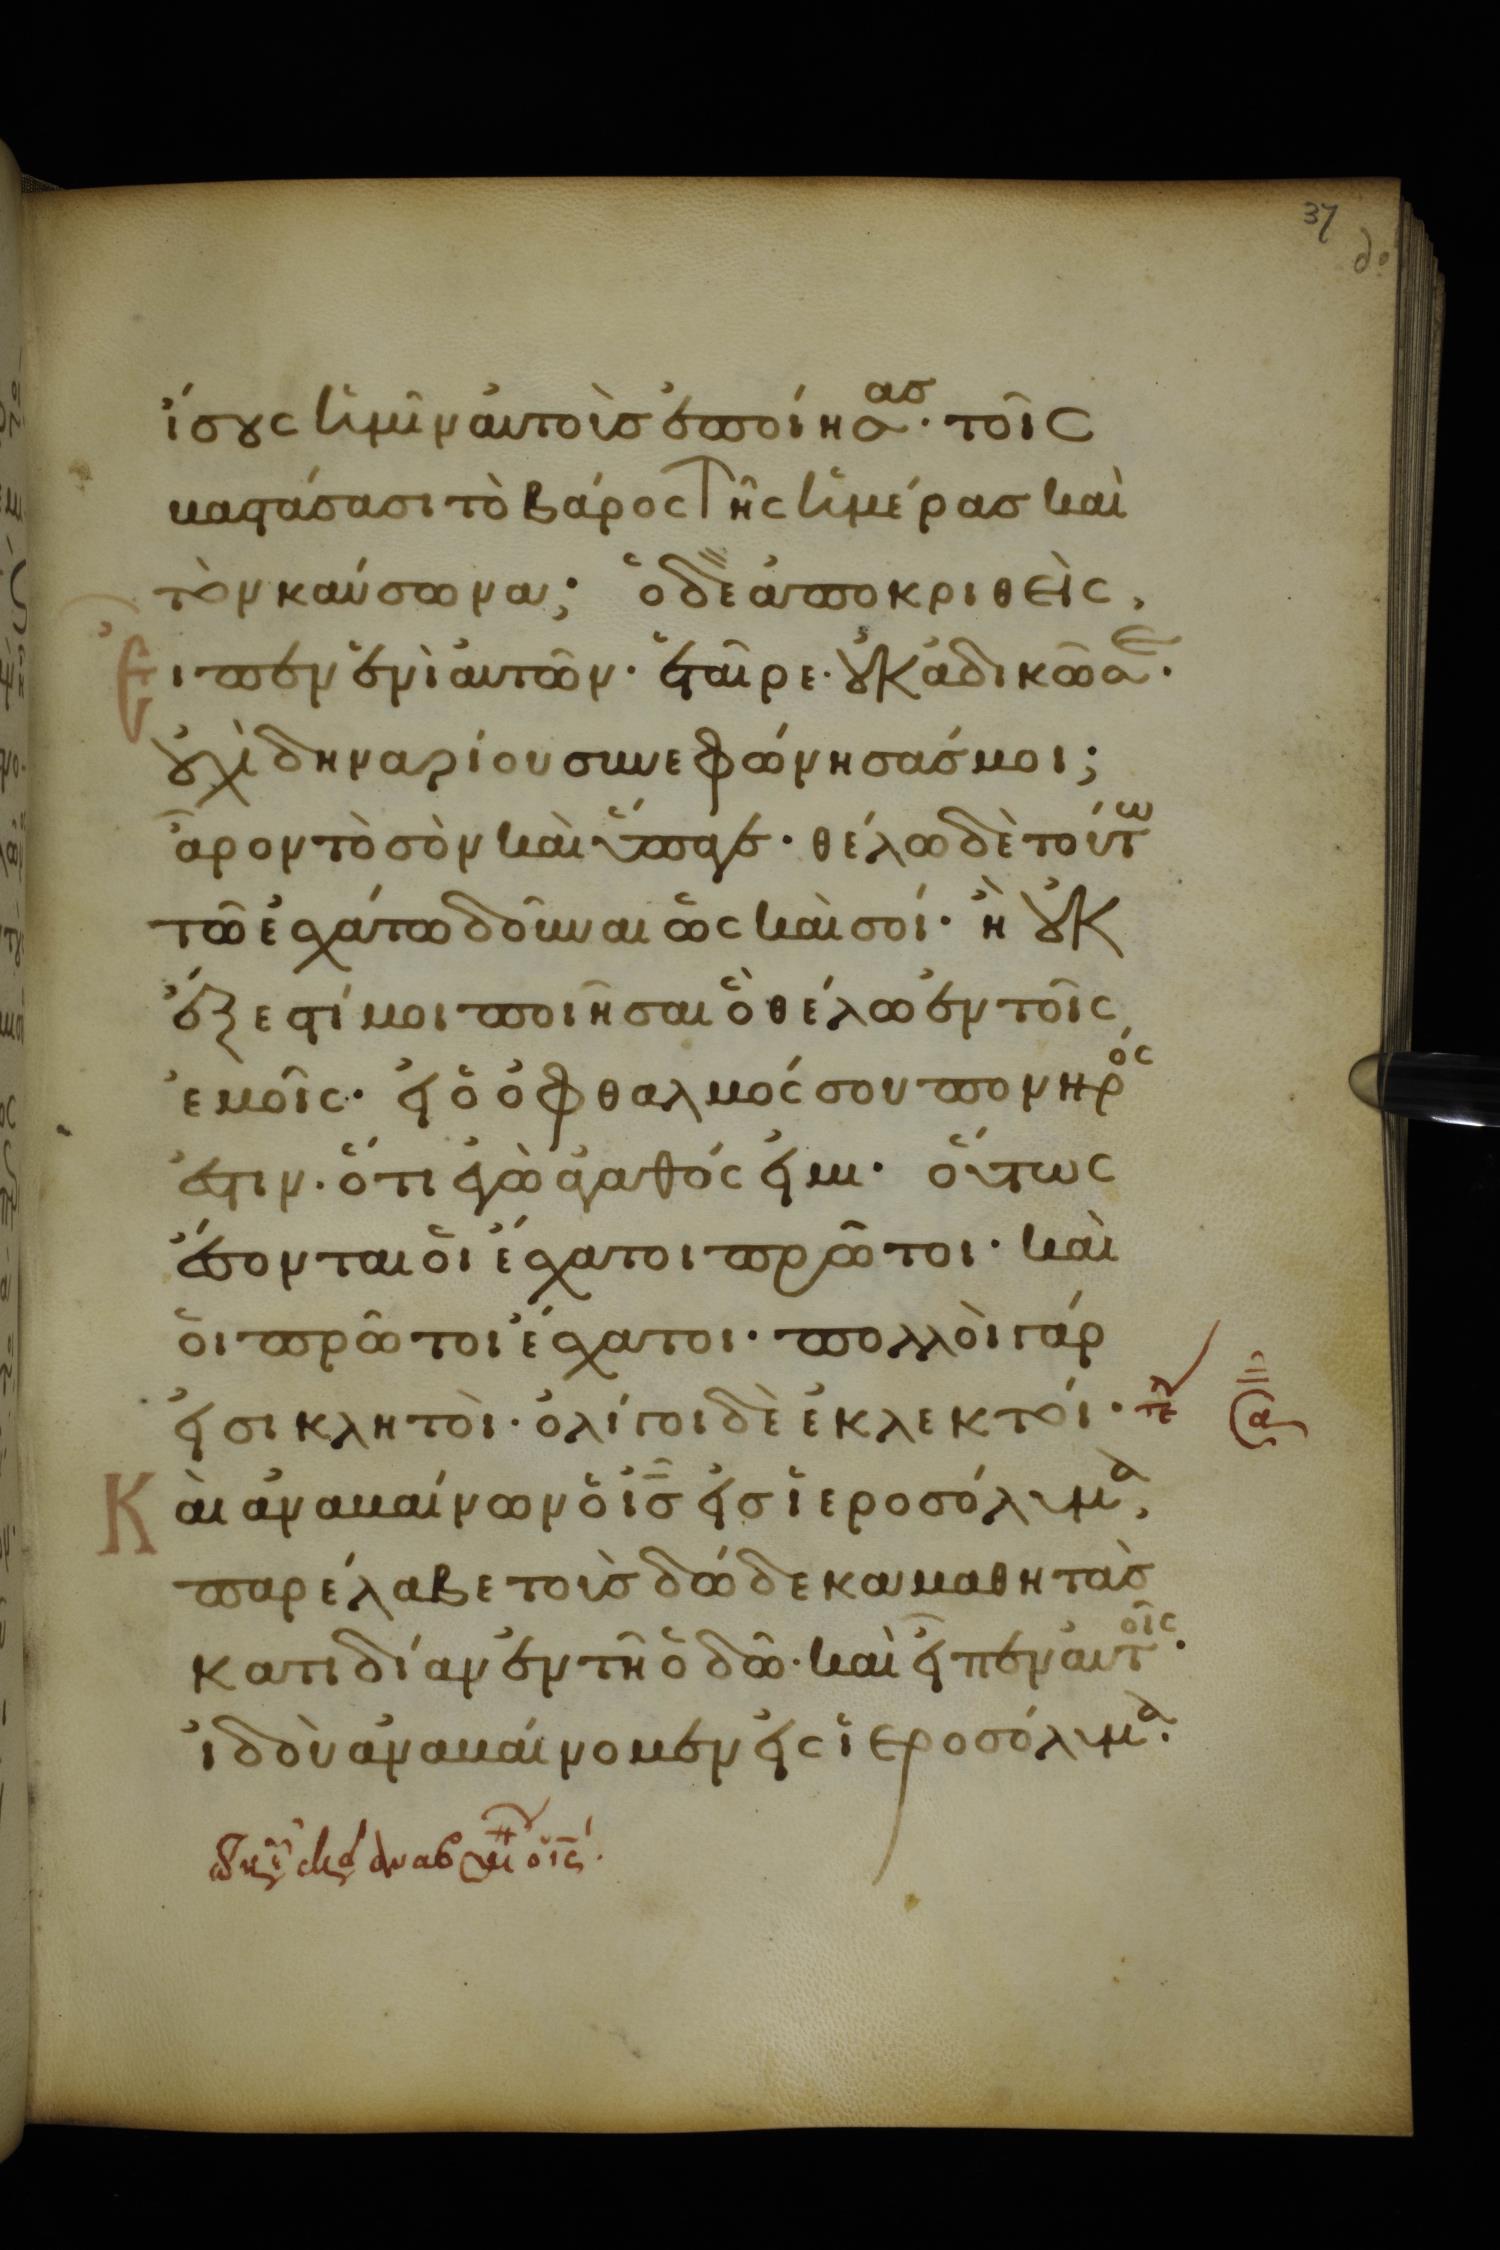 37
ἴσους ἡμῖν αὐτοὺσ ἐποίησασ· τοῖς
βαστάσασι τὸ βάρος τῆς ἡμέρασ καὶ
τὸν καύσωνα; ὁ δὲ ἀποκριθεὶς,
Εἶπεν ἐνὶ αὐτῶν· ἑταῖρε· οὐκ ἀδικῶ σε·
οὐχὶ δηναρίου συνεφώνησάσ μοι;
ἆρον τὸ σὸν καὶ ὕπαγε· θέλω δὲ τούτω
τῶ ἐσχάτω δοῦναι ὥς καὶ σοί· ἢ οὐκ
ἔξεστί μοι ποιῆσαι ὃ θέλω ἐν τοῖς
ἐμοῖς· εἰ ὁ ὀφθαλμός σου πονηρός
ἐστιν· ὅτι ἐγὼ ἀγαθός εἰμι· οὕτως
ἔσονται οἱ ἔσχατοι πρῶτοι· καὶ
οἱ πρῶτοι ἔσχατοι· πολλοὶ γάρ
εἰσι κλητοὶ· ὀλίγοι δὲ ἐκλεκτοί·
Καὶ ἀναβαίνων ὁ ἰς εἰσ ἱεροσόλυμα,
παρέλαβε τοὺσ δώδεκα μαθητὰσ
κατιδίαν ἐν τῆ ὁδῶ· καὶ εἶπεν αὐτοῖς·
ἰδοὺ ἀναβαίνομεν εἰς ἱεροσόλυμα·